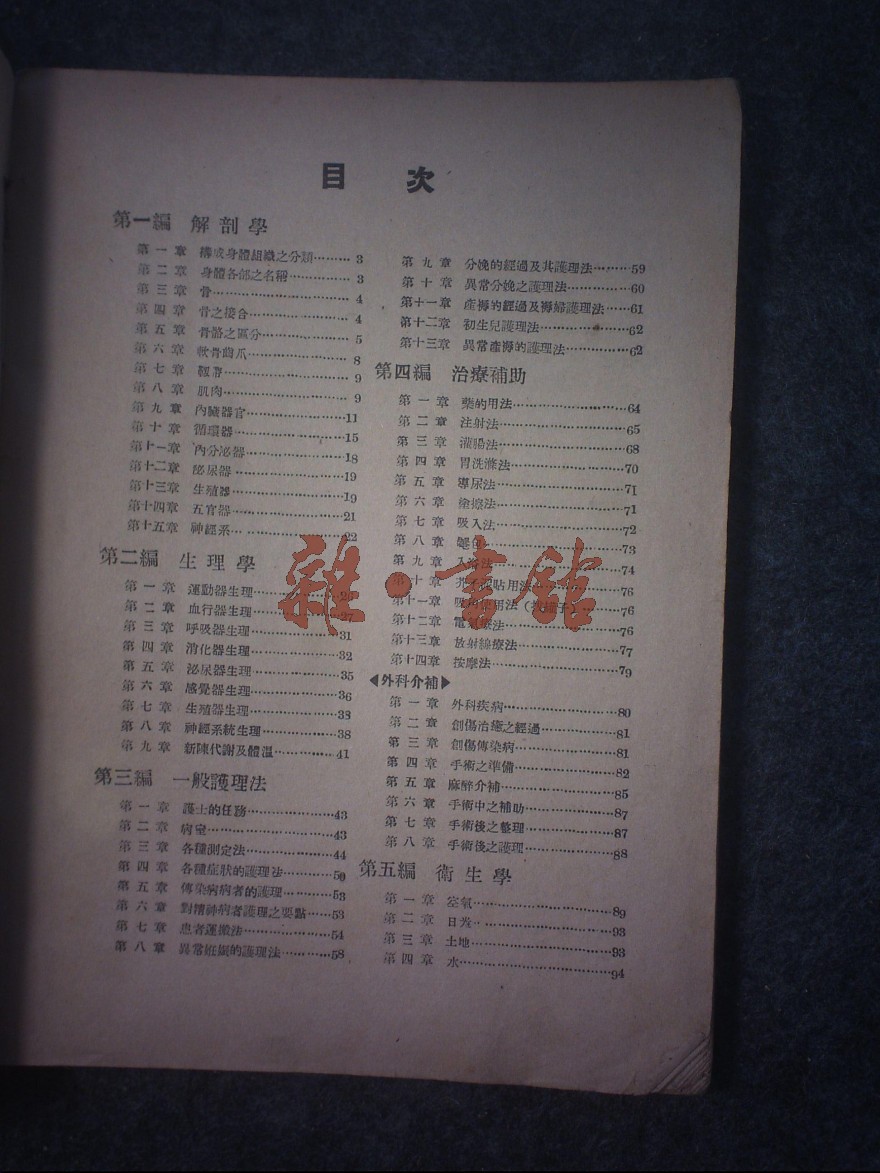 目 次
第一編 解剖學
第一章 構成身體組織之分類………3
第二章 身體各部之名稱…………3
第三章 骨…………4
第四章 骨之接合…………4
第五章 骨骼之區分…………5
第六章 軟骨齒爪…………8
第七章 靱帶…………9
第八章 肌肉…………9
第九章 內臟器官…………11
第十章 循環器…………15
第十一章 內分泌器…………18
第十二章 泌尿器…………19
第十三章 生殖器…………19
第十四章 五官器…………21
第十五章 神經系…………22
第二編 生理學
第一章 運動器生理…………
第二章 血行器生理…………27
第三章 呼吸器生理…………31
第四章 消化器生理…………32
第五章 泌尿器生理…………35
第六章 感覺器生理…………36
第七章 生殖器生理…………38
第八章 神經系統生理…………38
第九章 新陳代謝及體溫…………41
第三編 一般護理法
第一章 護士的任務…………43
第二章 病室…………43
第三章 各種測定法…………44
第四章 各種症狀的護理法………50
第五章 傳染病病者的護理………53
第六章 對精神病者護理之要點……53
第七章 患者運搬法…………54
第八章 異常姙娠的護理法………58
第九章 分娩的經過及其護理法………59
第十章 異常分娩之護理法…………60
第十一章 產褥的經過及褥婦護理法……61
第十二章 初生兒護理法…………62
第十三章 異常產褥的護理法…………62
第四編 治療補助
第一章 藥的用法…………64
第二章 注射法…………65
第三章 灌腸法…………68
第四章 胃洗滌法…………70
第五章 導尿法…………71
第六章 塗擦法…………71
第七章 吸入法…………72
第八章 …………73
第九章 …………74
第十章 芥子泥貼用法…………76
第十一章 …………76
第十二章 電 療法…………76
第十三章 放射線療法…………77
第十四章 按摩法…………79
◀外科介補▶
第一章 外科疾病…………80
第二章 創傷治癒之經過…………81
第三章 創傷傳染病…………81
第四章 手術之準備…………82
第五章 麻醉介補…………85
第六章 手術中之補助…………87
第七章 手術後之整理…………87
第八章 手術後之護理…………88
第五編 衛生學
第一章 空氣…………89
第二章 日光…………93
第三章 土地…………93
第四章 水…………94
雜·書館